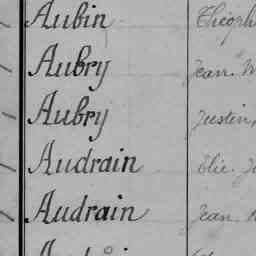 Aubin
Aubry Jean
Aubry Justin
Audrain Elie
Audrain Jean